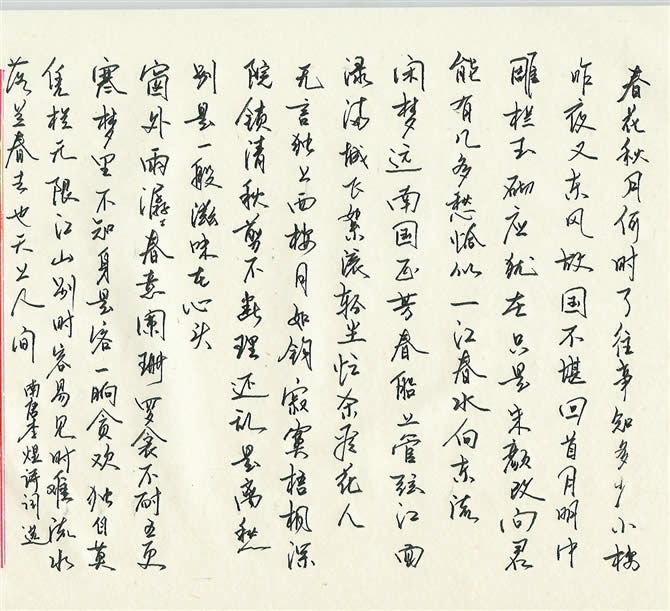 春花秋月何时了往事知多少小楼
昨夜又东风故国不堪回首月明中
雕栏玉砌应犹在只是朱颜改问君
能有几多愁恰似一江春水向东流
闲梦远南国正芳春船上管弦江面
渌满城飞絮滚轻尘忙杀看花人
无言独上西楼月如钩寂寞梧桐深
院锁清秋剪不断理还乱是离愁
别是一般滋味在心头
窗外雨潺潺春意阑珊罗衾不耐五更
寒梦里不知身是客一晌贪欢独自莫
凭栏无限江山别时容易见时难流水
落花春去也天上人间
南唐李煜诗词选